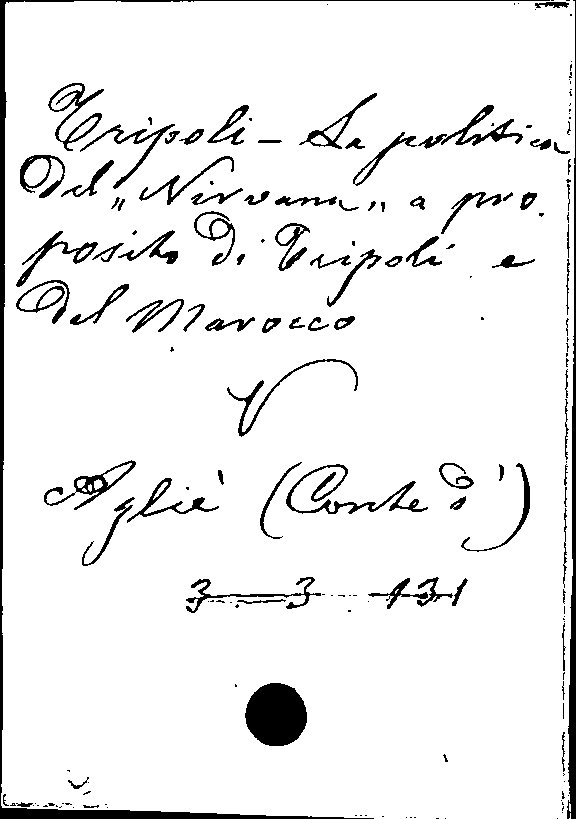 Tripoli - La politica
del „Nirvana„ a pro
posito di Tripoli e
del Marocco
V
Agliè (Conte d')
3 3 131